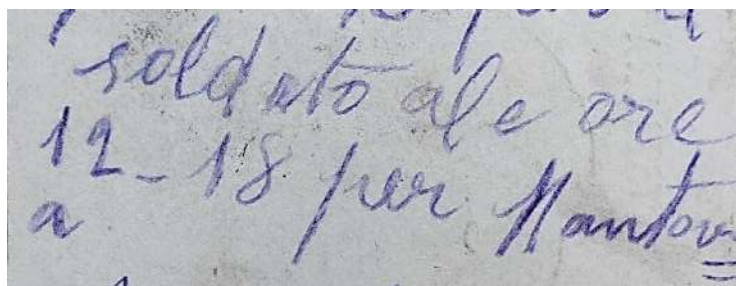 soldato ale ore
12-18 per Mantov=
a